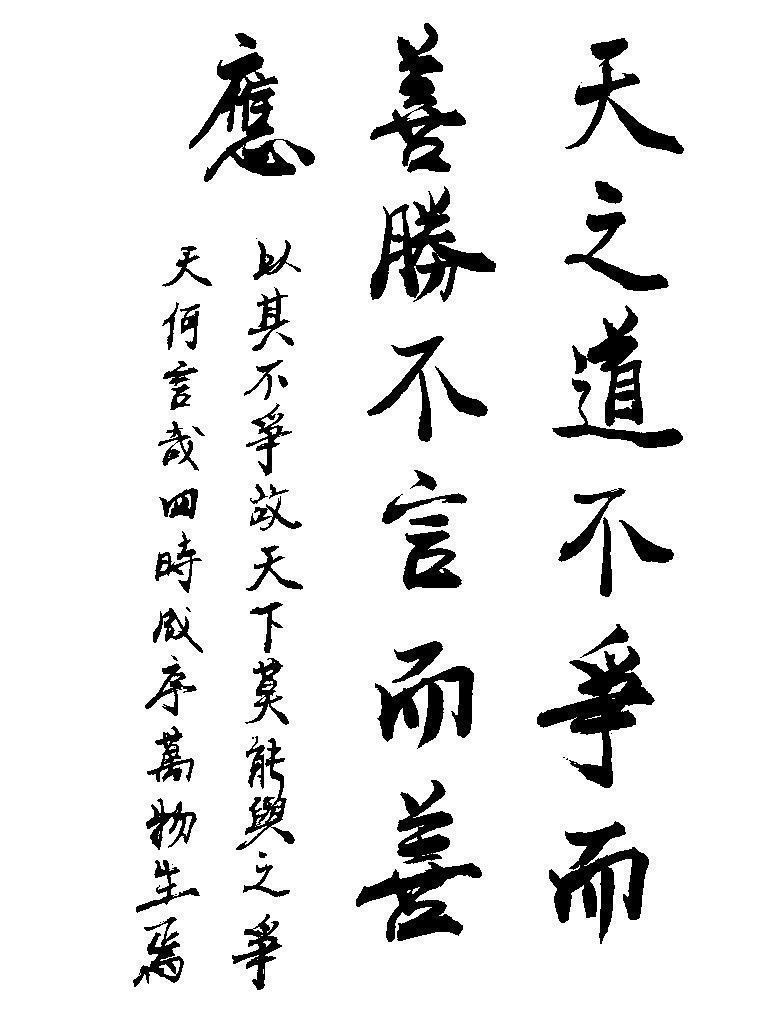 天之道不爭而
善勝不言而善
應
以其不爭故天下莫能與之爭
天何言哉四時成序萬物生焉